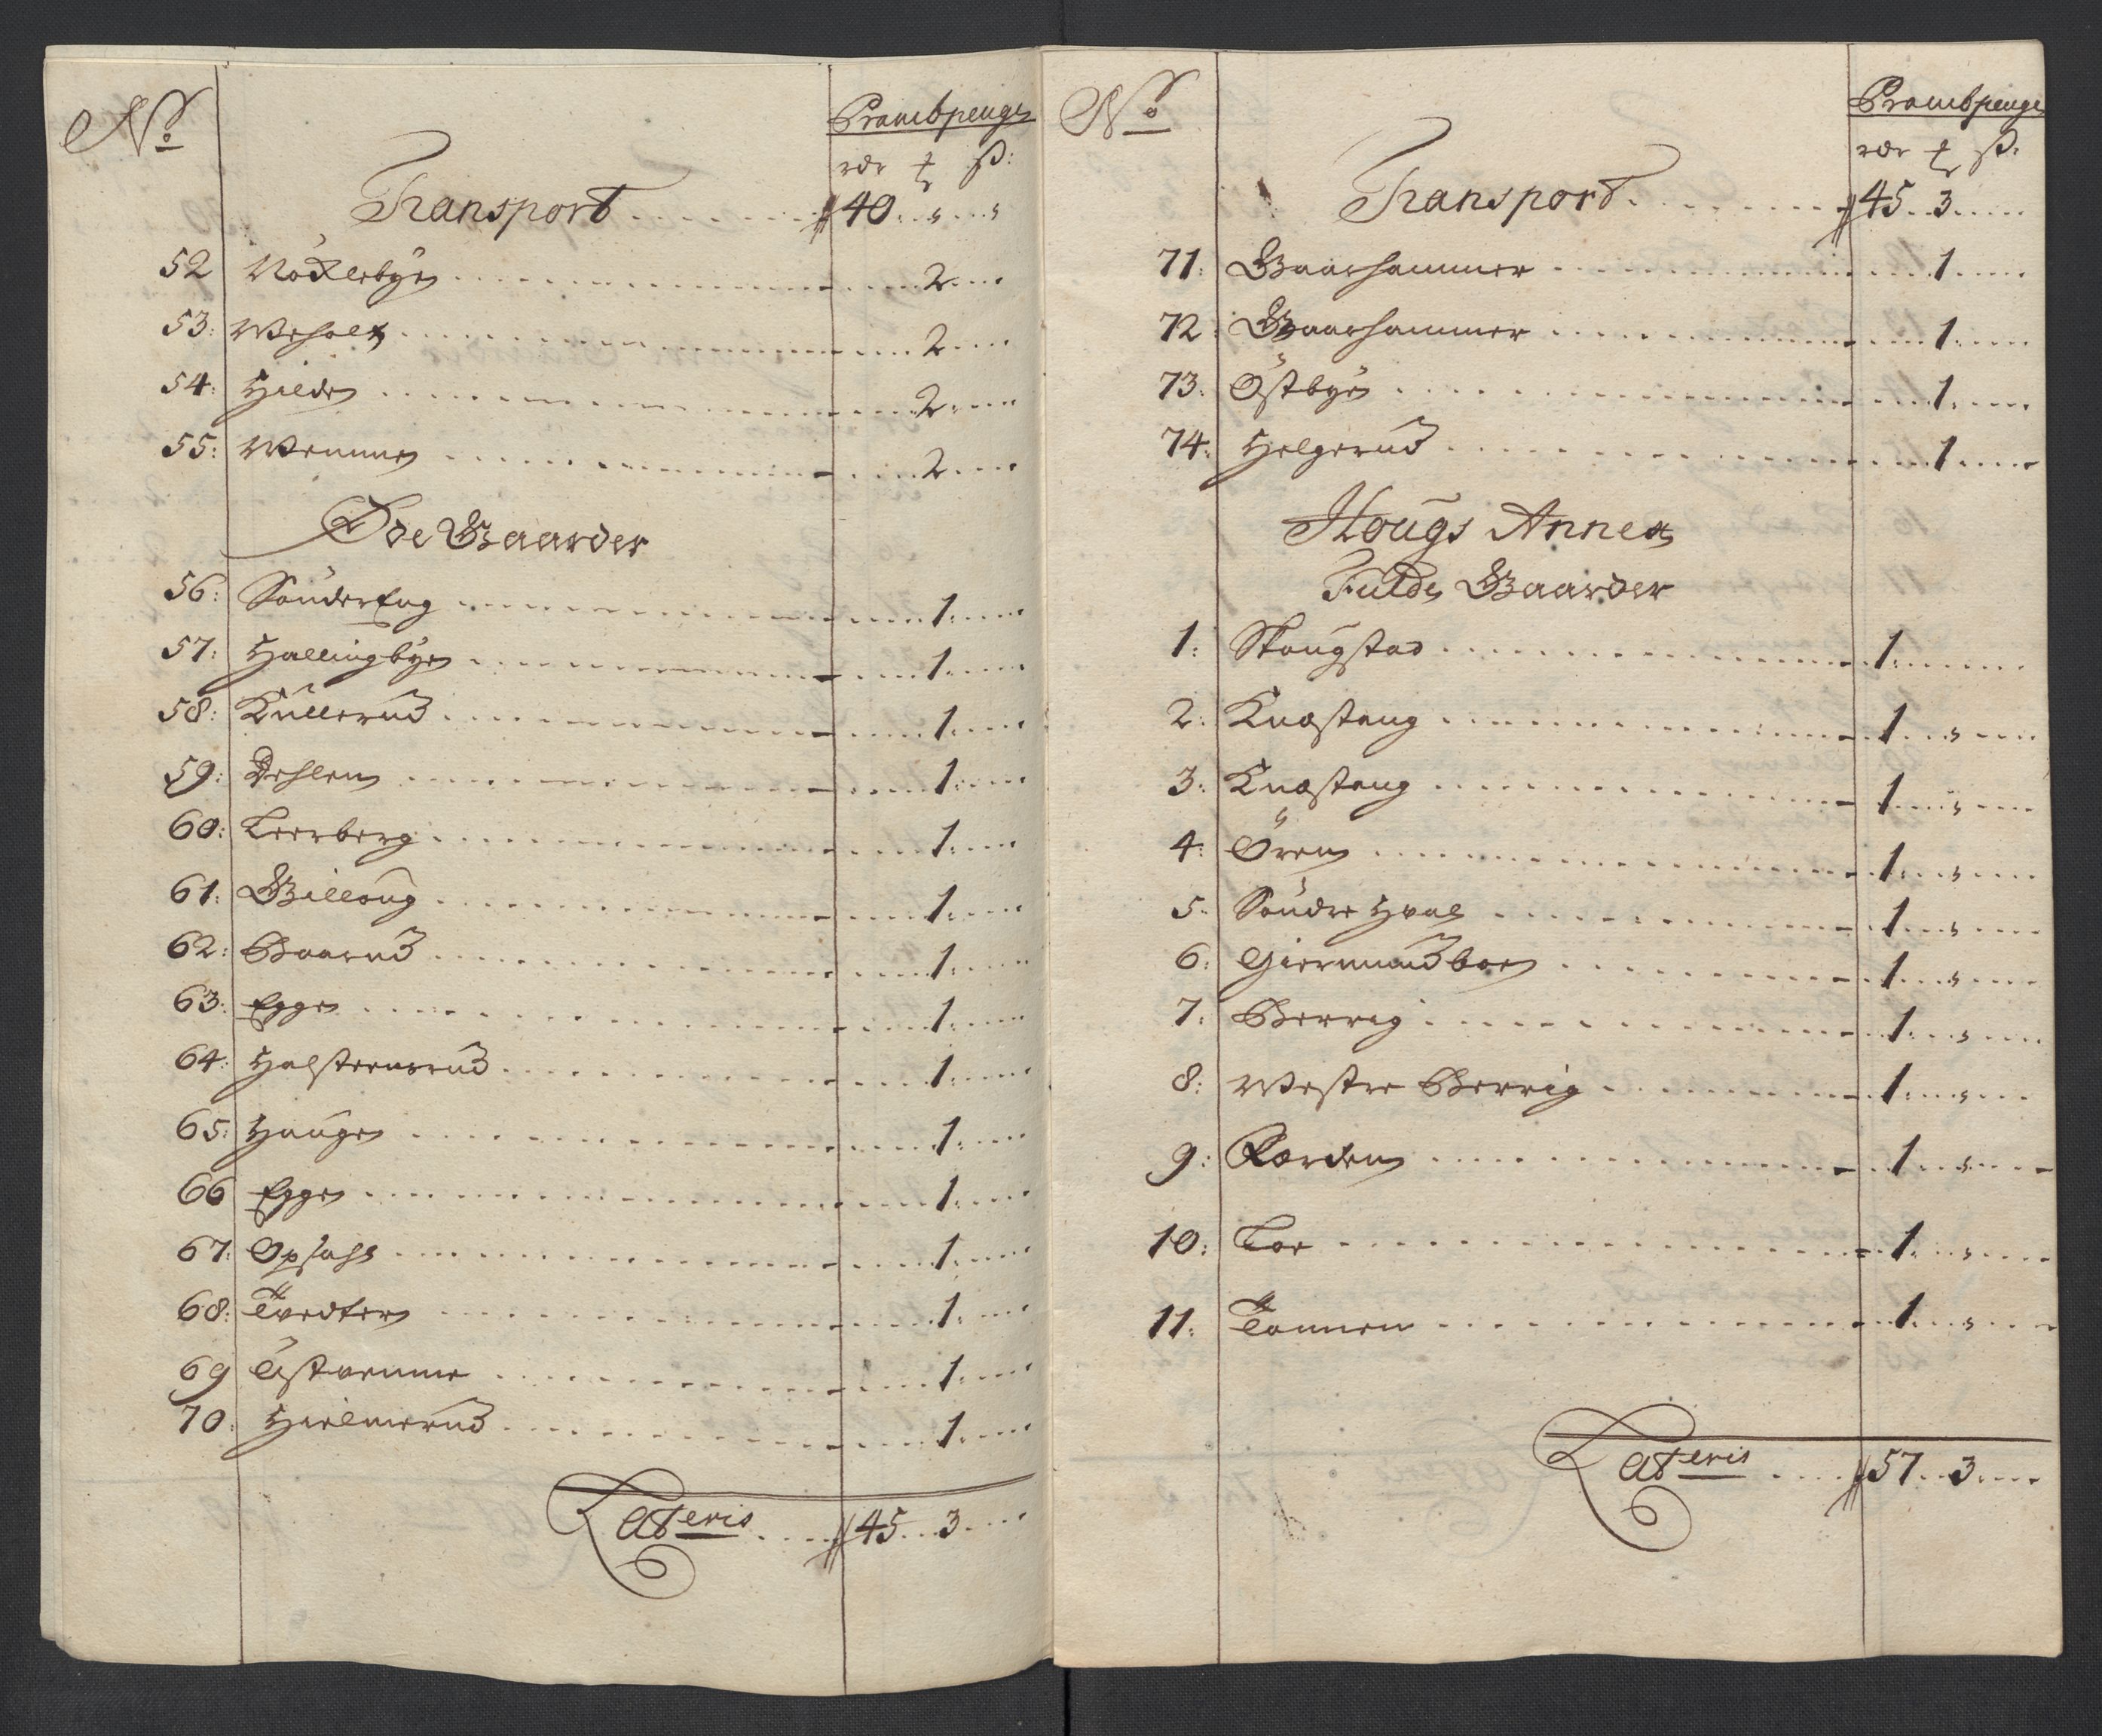 No
Prambpenge
rdr ort ß:
Transport 40
52 Nocklebye 2
53: Weholt 2
54: Hilde 2
55: Wemme 2
Øde Gaarder
56: SönderEng 1
57: Hallingbye 1
58: Kullerud 1
59: Dehlen 1
60: Leerberg 1
61: Gilloug 1
62: Baarud 1
63: Egge 1
64: Halsteensrud 1
65: Hauge 1
66 Egge 1
67: Opsahl 1
68: Tvedten 1
69 Astvemme 1
70: Hielmerud 1
Lateris 45 3
No
Prambpenge
rdr ort ß:
Transport 45 3
71: Gaarhammer 1
72: Gaarhammer 1
73: Östbye 1
74: Helgerud 1
Hougs Annex
Fulde Gaarder
1: Skougstad 1
2: Knæstang 1
3: Knæstang 1
4: Ören 1
5: Söndre Hval 1
6: Giermundboe 1
7: Berrig 1
8: Westre Berrig 1
9: Færden 1
10: Loe 1
11: Tannen 1
Lateris 57 3